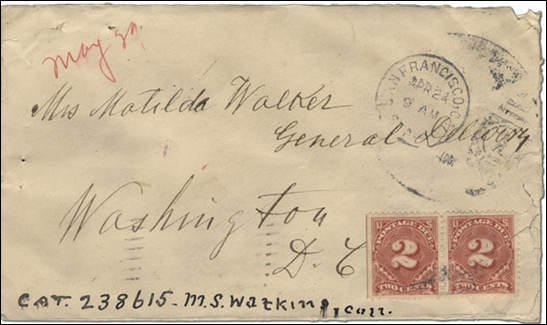 May 29
SAN FRANCISCO, C
APR 24
9 AM
1901
Mrs Matilda Walker
General Delivery
Washington
D. C
POSTAGE DUE POSTAGE DUE
2 2
TWO CENTS TWO CENTS
CAT. 238615 - M.S. Watkins, Coll.